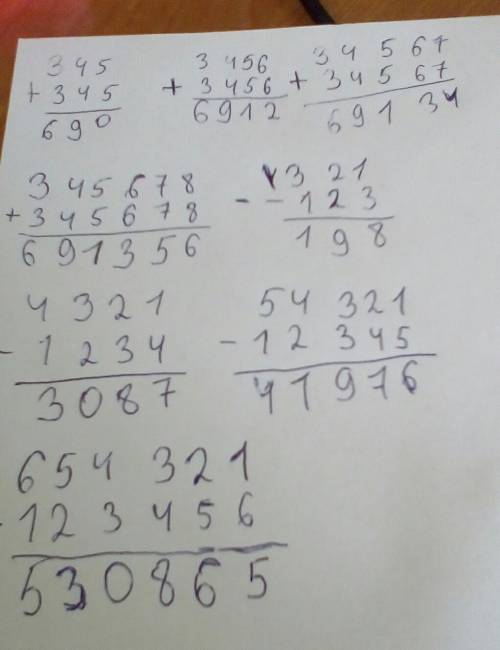 345
+ 345
690
3456
+ 3456
6912
34567
+ 34567
69134
345678
+ 345678
691356
321
- 123
198
4321
- 1234
3087
54321
- 12345
41976
654321
- 123456
530865